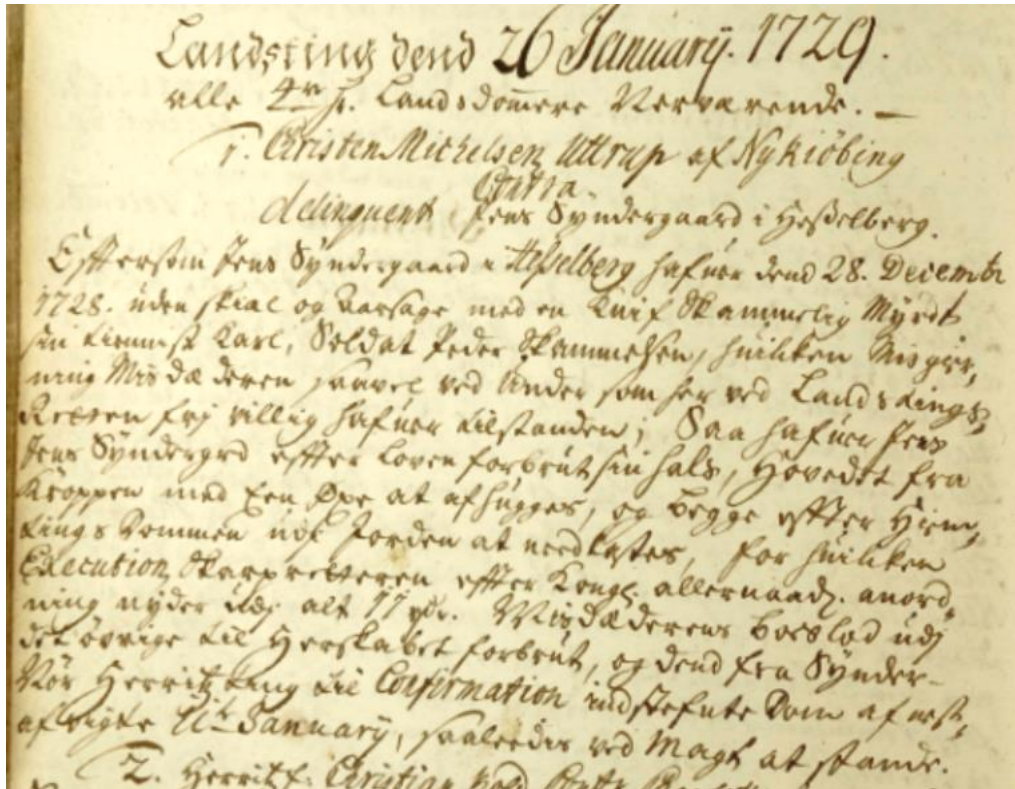 Landsting dend 26 January. 1729.
alle 4re Hr. Landsdommere Nerværende. —
1. Christen Michelsen Uttrup af Nykiöbing
Contra.
delinquent, Jens Syndergaard i Heßelberg.
Efftersom Jens Syndergaard i Hesselberg hafuer dend 28. Decembr
1728. uden skiel og Aarsage med en Kniif Skammelig Myrdt
sin tienniste Karl, Soldat Peder Skammelsen, huilken Misgier,
ning Misdæderen saavel ved Under som her ved Landstings,
Retten frj villig hafuer tilstanden; Saa hafuer Jens
Jens Syndergrd effter Loven forbrut sin hals, Hovedet fra
Kroppen med een Øxe at afhugges, og begge effter Hiem,
tings Dommen udj Jorden at nedkastes, for huilken
Execution, Skarpretteren effter Kongl. allernaad. anord,
ning nyder udj alt 11 rdr. Misdæderens boeslod udj
det övrige til Herskabet forbrut, og dend fra Synder-
Nör Herritz ting til Confirmation indstefnte Dom af nest,
afvigte 11te January, saaledis ved Magt at stande.
2. Herritzf. Christian